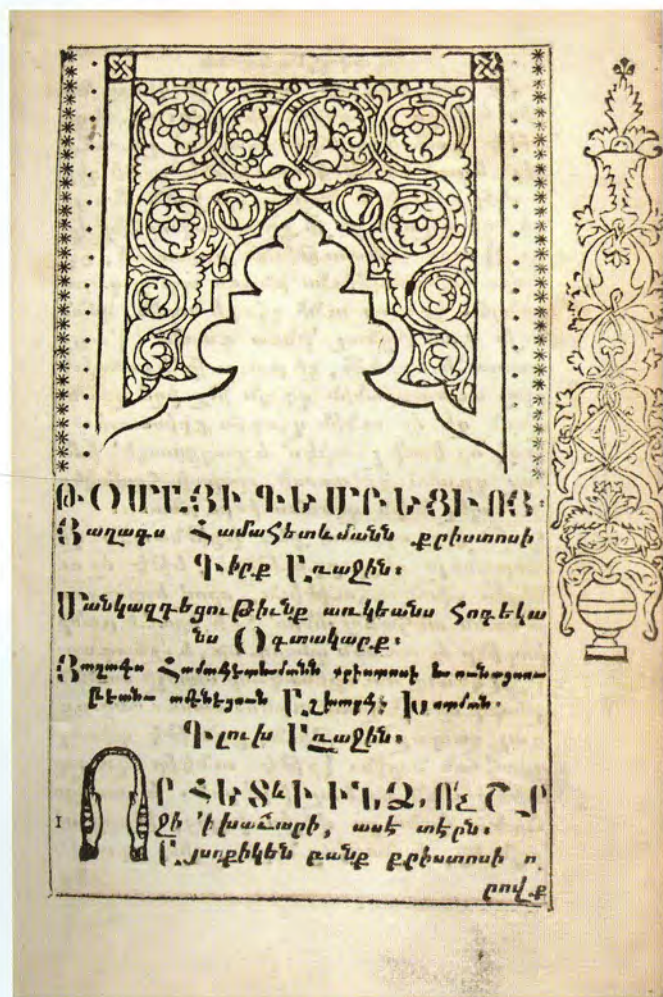 ԹՕՄԱՅԻ ԳԵՄԲԵՑԻՈՅ։
Յաղագս Համահետևմանն քրիստոսի
Գիրք Առաջին։
Մանկազդեցութիւնք առկեանս հոգեկա
նս Օգտակարք։
Յաղագս Համահետևմանն քրիստոսի և
թեանս ամենեցուն Աշխարհի Խոտման.
Գլուխ Առաջին։
ՈՐ ՀԵՏևԻ ԻՆՁ, ՈՉ ՇՐ
1 ջի 'ի խաւարի, ասէ տէրն։
Այսոքիկեն բանք քրիստոսի ո
րովք